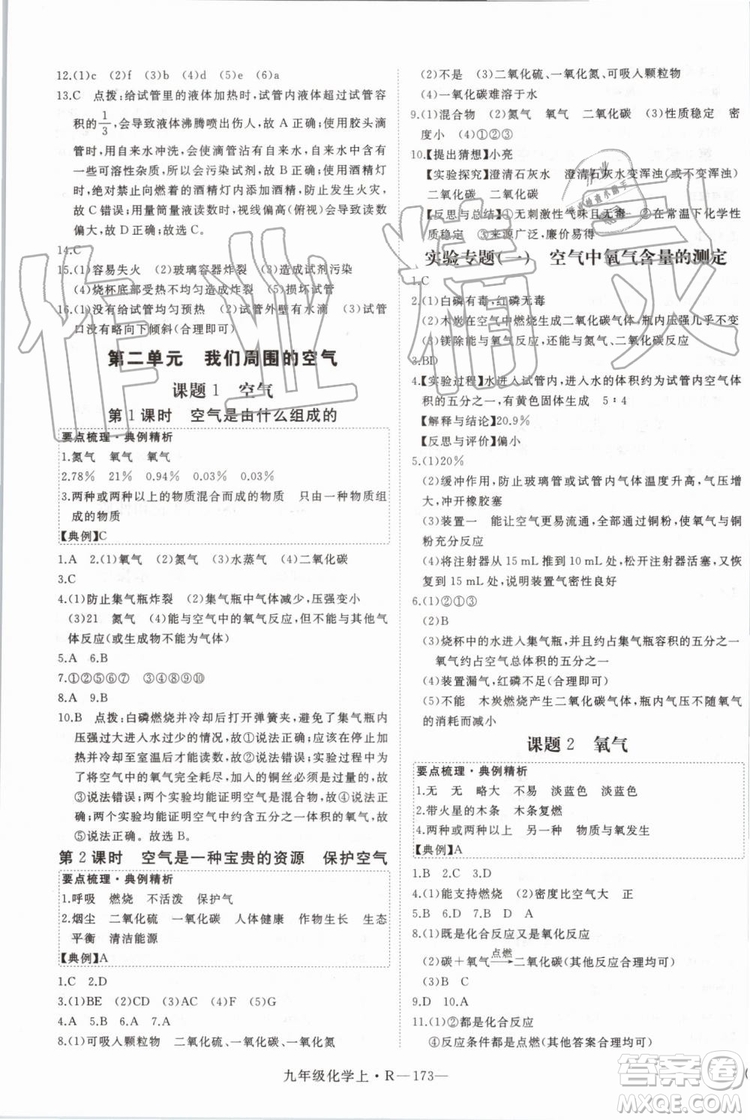 12.(1)c (2)f (3)b (4)d (5)e (6)a
13.C 点拨:给试管里的液体加热时,试管里的液体超过试管容
积的1/3,会导致液体沸腾喷出伤人,故 A 正确;用胶头滴
管时,直接用自来水冲洗,会导致污染试剂,自来水中含有
一些可溶性杂质,故 B 错误;添加酒精时,直接往酒精灯
燃着的酒精灯内添加酒精,会导致酒精失火,发生火灾,
故 C 错误;用量筒量液体读数时,视线偏高(俯视)会导致读数
偏大,故 D 正确。故选 C。
14.C
15.(1)容易失火 (2)玻璃容器炸裂 (3)造成试剂污染
(4)烧杯底部受热不均匀炸裂 (5)损坏试管
16.(1)没有给试管均匀预热 (2)试管外壁有水滴 (3)试管
口没有略向下倾斜(合理即可)
第二单元 我们周围的空气
课题1 空气
第1课时 空气是由什么组成的
要点梳理·典例精析
1.氮气 氧气 氧气
2.78% 21% 0.94% 0.03% 0.03%
3.两种或两种以上的物质混合而成的物质 只由一种物质组
成的物质
【典例】C
1.A 2.(1)氧气 (2)氮气 (3)水蒸气 (4)二氧化碳
3.C
4.(1)防止集气瓶炸裂 (2)集气瓶中气体减少,压强减小
(3)21 氮气 (4)能与空气中的氧气反应,不能与其他气
体反应(或生成物不能为气体)
5.A 6.B
7.①②⑤⑥⑦ ③④⑧⑨⑩
8.C 9.B
10.B 点拨:白磷燃烧并冷却后打开弹簧夹,避免了集气瓶内
压强过大进入水过少的情况,①说法正确;②实验中氧
气可能没有完全反应,则测定结果偏小,②说法错误;要
将空气中的氧气完全耗尽,加入的铜丝必须是过量的,
③说法正确;两个实验均能证明空气是混合物,④说法正
确;两个实验均能证明空气中氧气的体积分数,⑤说法正
确。故选 B。
第2课时 空气是一种宝贵的资源 保护空气
要点梳理·典例精析
1.呼吸 燃烧 不活泼 保护气
2.烟尘 二氧化硫 一氧化碳 人体健康 作物生长 生态
平衡 清洁能源
【典例】A
1.C 2.D
3.(1)BE (2)CD (3)AF (4)D (5)G
4.A 5.D 6.C 7.B
8.(1)可吸入颗粒物 二氧化硫、一氧化碳、二氧化氮
(2)不是 (3)二氧化硫、一氧化氮、可吸入颗粒物
(4)一氧化碳难溶于水
9.(1)混合物 (2)氮气 氧气 二氧化碳 (3)性质稳定 密
度小 (4)①③②
10.【提出猜想】小亮
【实验探究】澄清石灰水 澄清石灰水变浑浊(或不变浑浊)
二氧化碳 二氧化碳
【反思与总结】①无刺激性气味且无毒 ②常温下化学性
质稳定 ③来源广泛,廉价易得
实验专题(一) 空气中氧气含量的测定
1.C
2.(1)白磷有毒,红磷无毒
(2)木炭在空气中燃烧生成二氧化碳气体,瓶内压强几乎不变
(3)镁除能与氧气反应外,还能与氮气、二氧化碳反应
3.BD
4.【实验过程】水进入试管内,进入水的体积约为试管内空气
总体积的五分之一,有黄色固体生成 5∶4
【解释与结论】20.9%
【反思与评价】偏小
5.(1)15%
(2)缓冲作用,防止玻璃管或试管内气体温度升高,气体压强增大,
冲开橡胶塞
(3)装置一 能让空气更易流通,全部通过铜粉,与铜
粉充分反应
(4)将注射器从 15 mL 推到 10 mL 处,松开注射器活塞,又
恢复到 15 mL 处,说明装置气密性良好
6.(1)②①③
(2)①
(3)烧杯中的水进入集气瓶,进入水的体积约占五分之一
氧气约占空气总体积的五分之一
(4)装置漏气,红磷量不足
(5)不能 木炭燃烧产生二氧化碳气体,瓶内气压不因氧气
的消耗而减小
课题2 氧气
要点梳理·典例精析
1.无 无 略大 不易 淡蓝色 淡蓝色
2.带火星的木条 木条复燃
4.两种或两种以上 另一种 物质与氧发生
【典例】A
1.B 2.C 3.D 4.D
5.(1)能支持燃烧 (2)密度比空气大 正
6.D 7.C
8.(1)既是化合反应又是氧化反应
(2)碳+氧气—点燃→二氧化碳(其他合理答案均可)
(3)BCD
9.D 10.A
11.(1)②都是化合反应
④反应条件都是点燃(其他合理答案均可)
九年级化学上·R—173—
作业精灵
答案圈